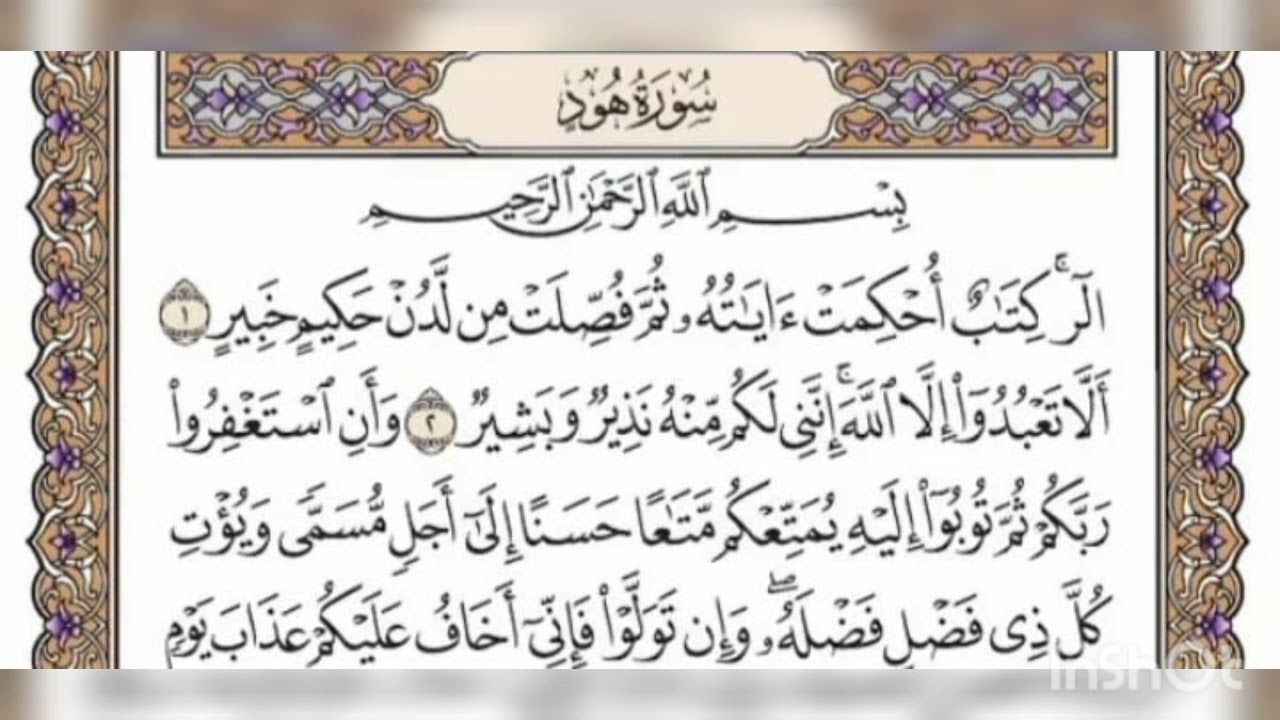 سُورَةُ هُودٍ
بِسْمِ ٱللَّهِ ٱلرَّحْمَٰنِ ٱلرَّحِيمِ
الٓرۚ كِتَٰبٌ أُحْكِمَتْ ءَايَٰتُهُۥ ثُمَّ فُصِّلَتْ مِن لَّدُنْ حَكِيمٍ خَبِيرٍ ١
أَلَّا تَعْبُدُوٓا۟ إِلَّا ٱللَّهَۚ إِنَّنِى لَكُم مِّنْهُ نَذِيرٌ وَبَشِيرٌ ٢ وَأَنِ ٱسْتَغْفِرُوا۟
رَبَّكُمْ ثُمَّ تُوبُوٓا۟ إِلَيْهِ يُمَتِّعْكُم مَّتَٰعًا حَسَنًا إِلَىٰٓ أَجَلٍ مُّسَمًّى وَيُؤْتِ
كُلَّ ذِى فَضْلٍ فَضْلَهُۥۖ وَإِن تَوَلَّوْا۟ فَإِنِّىٓ أَخَافُ عَلَيْكُمْ عَذَابَ يَوْمٍ
InShOt